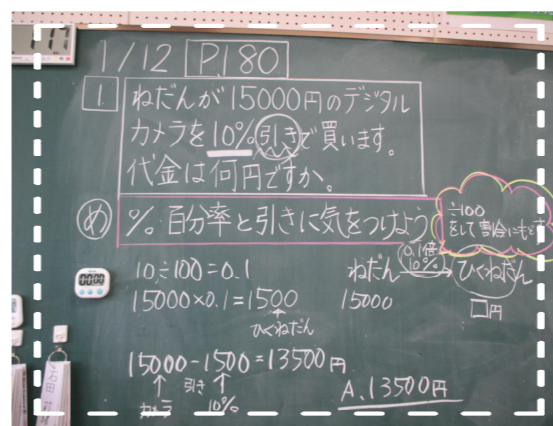 1/12 P.180
1. ねだんが15000円のデジタル
カメラを10%引きで買います。
代金は何円ですか。
め %百分率と引きに気をつけよう
÷100
をして割合にもどす
10÷100=0.1
15000×0.1=1500
ひくねだん
ねだん 0.1倍 10% ひくねだん
15000 □円
15000-1500=13500円
カメラ 引き 10%
A.13500円
00:00